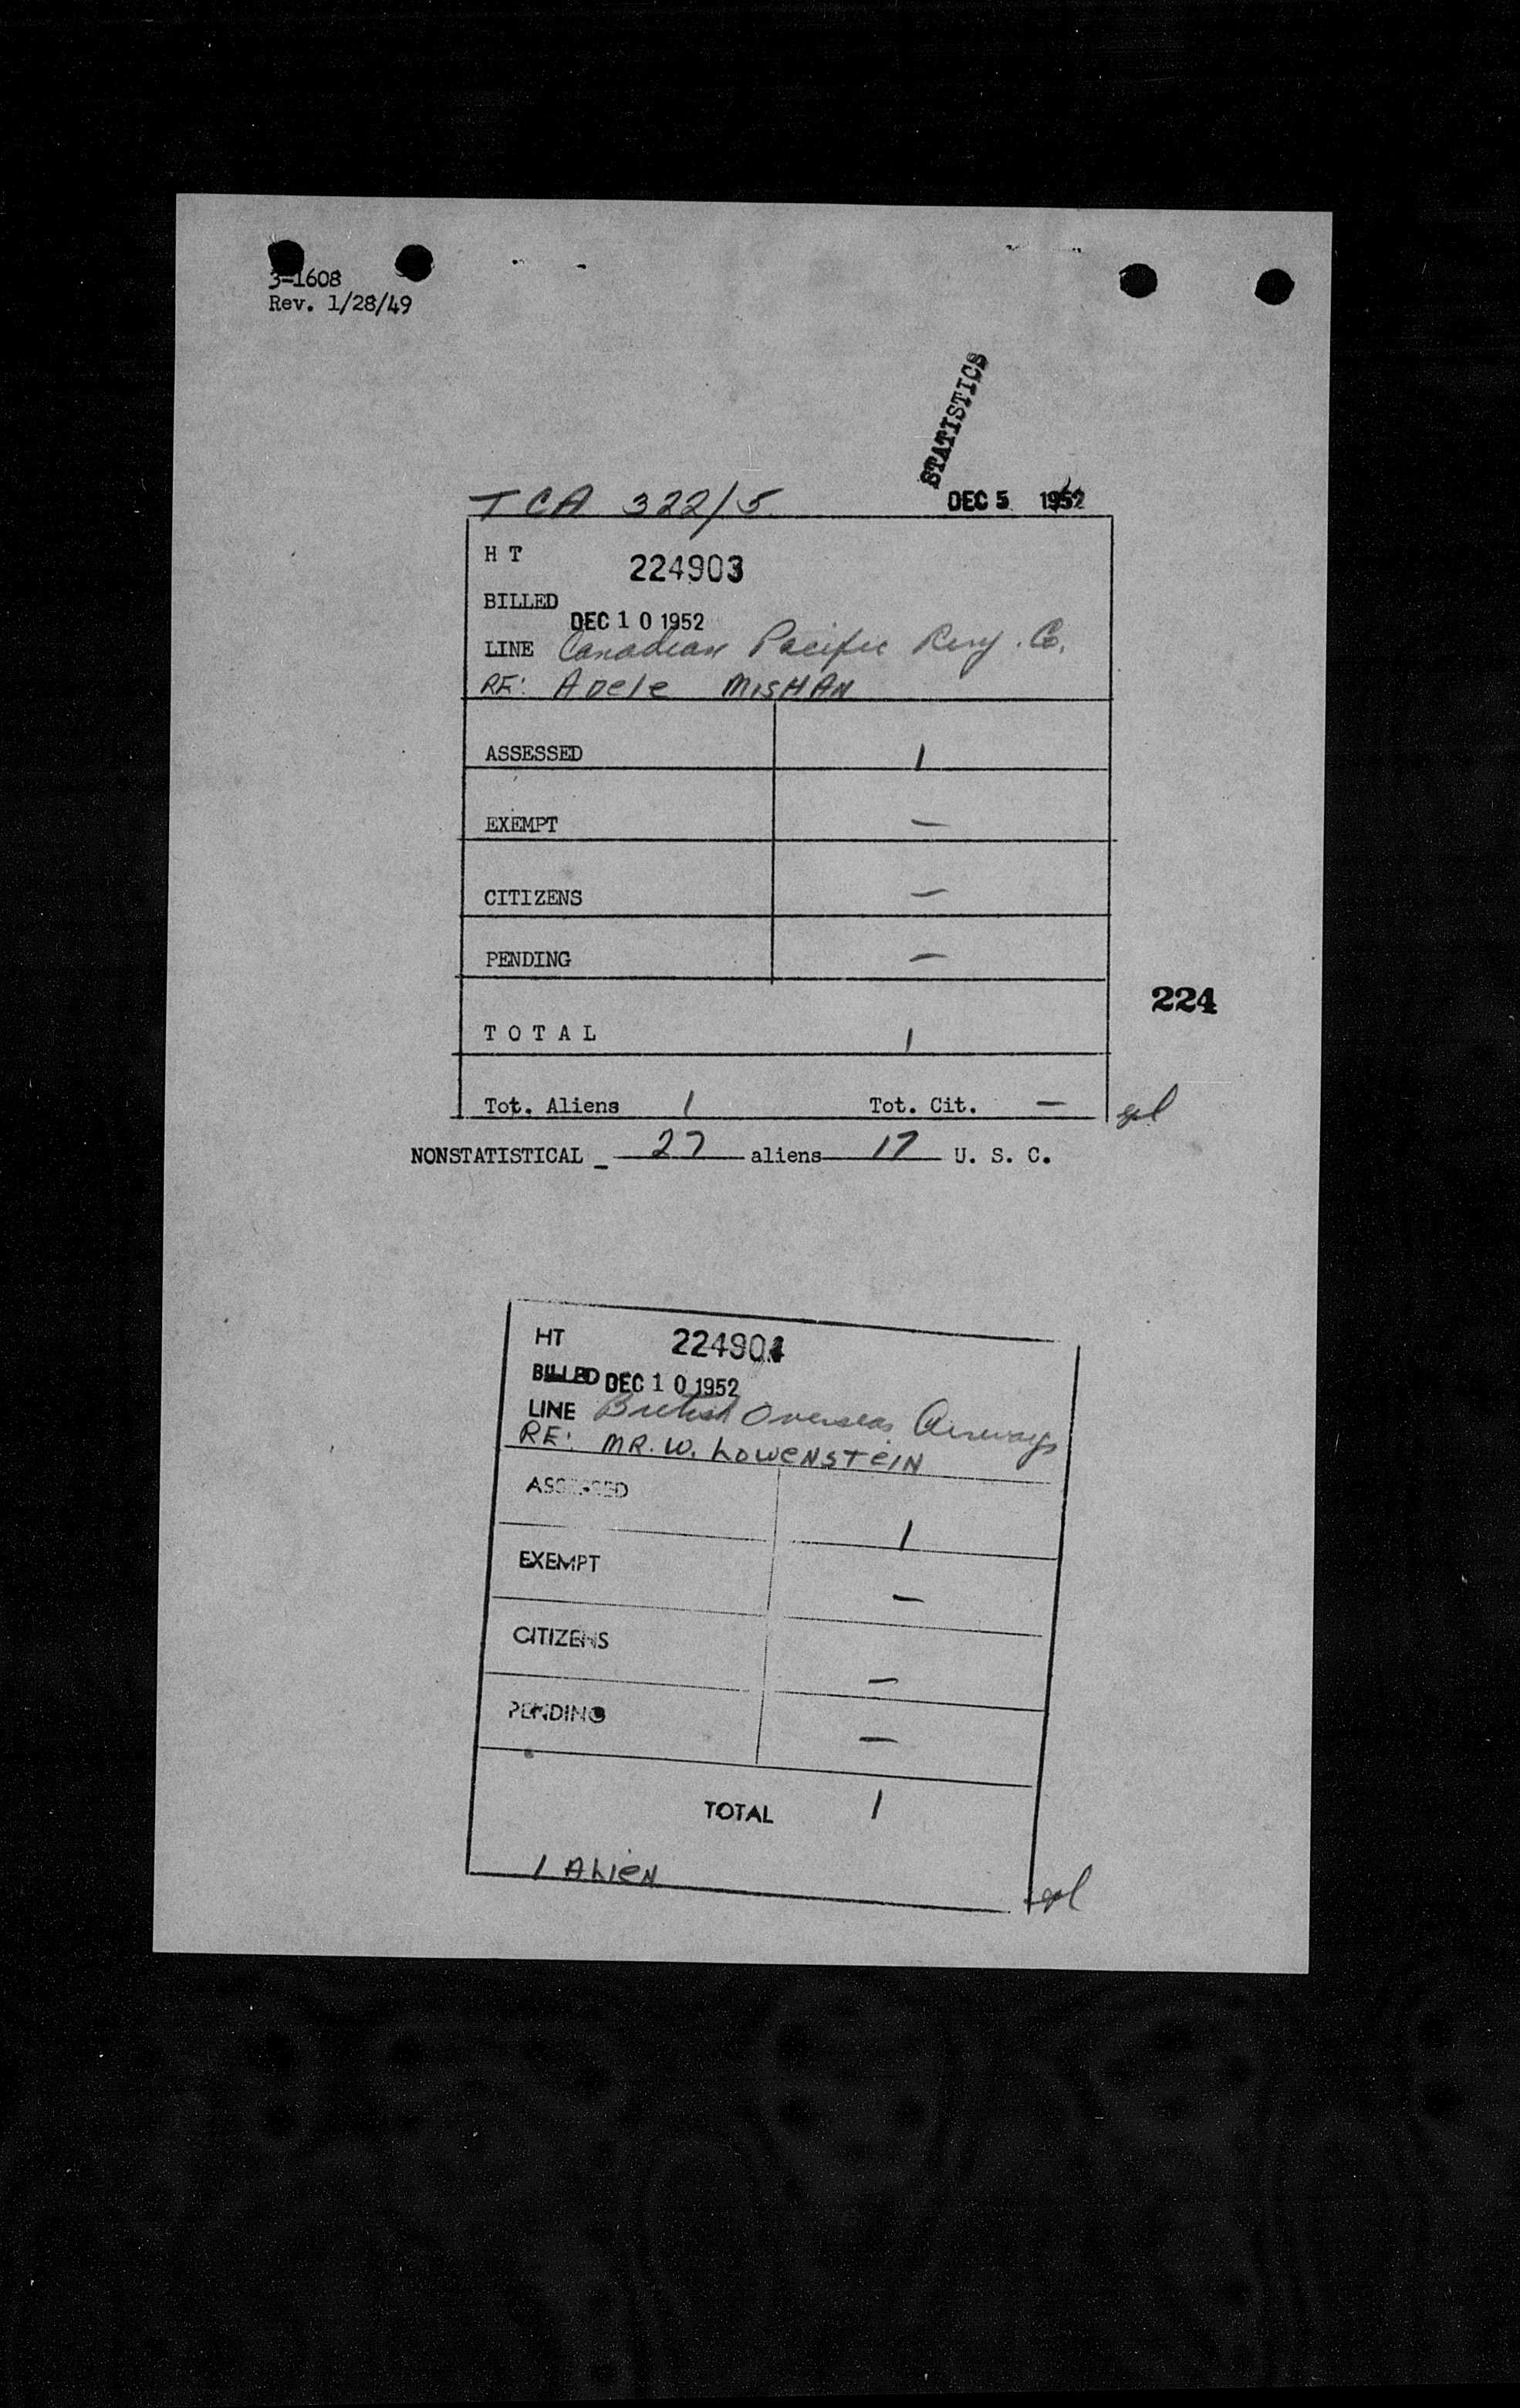 3-1608
Rev. 1/28/49
STATISTICS
TCA 322/5 DEC 5 1952
H T 224903
BILLED DEC 10 1952
LINE Canadian Pacific Rwy. Co.
RE: ADele MISHAN
ASSESSED 1
EXEMPT —
CITIZENS —
PENDING —
224
T O T A L 1
Tot. Aliens 1 Tot. Cit. —
NONSTATISTICAL _ 27 aliens 17 U. S. C.
HT 224904
BILLED DEC 10 1952
LINE British Overseas Airways
RE: MR. W. LOWENSTEIN
ASSESSED 1
EXEMPT —
CITIZENS —
PENDING —
TOTAL 1
1 ALIEN